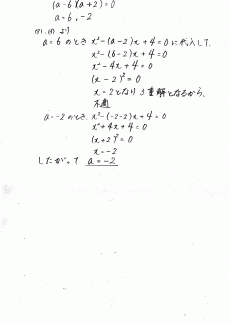 (a-6)(a+2)=0
a=6, -2
(i), (ii) より
a=6 のとき x²-(a-2)x+4=0 に代入して.
x²-(6-2)x+4=0
x²-4x+4=0
(x-2)²=0
x=2となり 3重解となるから、
不適
a=-2のとき. x²-(-2-2)x+4=0
x²+4x+4=0
(x+2)²=0
x=-2
したがって a=-2